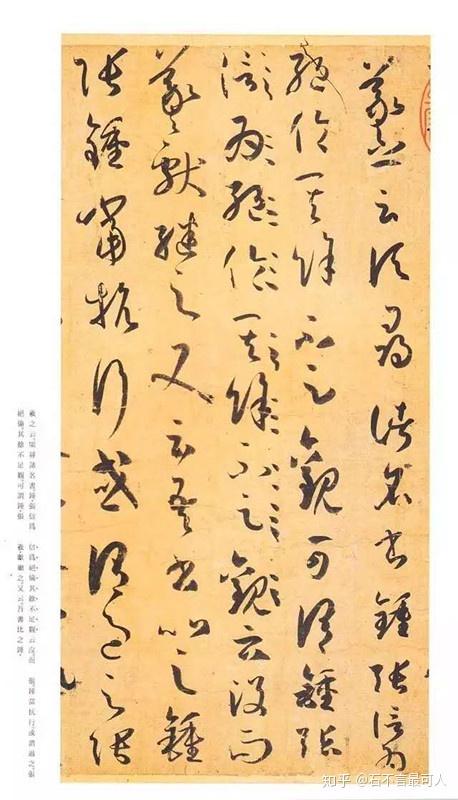 羲之云頃尋諸名書鍾張信為
絕倫其餘不足觀可謂鍾張
信為絕倫其餘不足觀云沒而
羲獻繼之又云吾書比之鍾
張鍾當抗行或謂過之張
羲之云頃尋諸名書鍾張信爲
絕倫其餘不足觀可謂鍾張
信爲絕倫其餘不足觀云沒而
羲獻繼之又云吾書比之鍾
張鍾當抗行或謂過之張
知乎 @石不言最可人